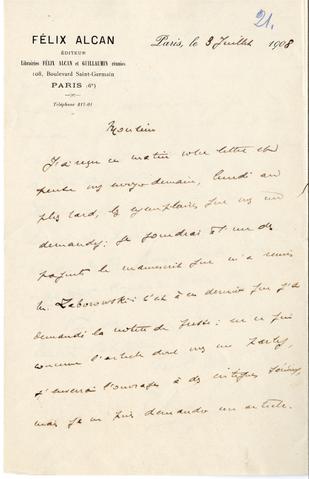 21.
FÉLIX ALCAN
ÉDITEUR
Librairies FÉLIX ALCAN et GUILLAUMIN réunies
108, Boulevard Saint-Germain
PARIS (6e)
Téléphone 817-01
Paris, le 3 Juillet 1908
Monsieur
J'ai reçu ce matin votre lettre et
pense vous envoyer demain, lundi au
plus tard, les exemplaires que vous me
demandez; je joindrai à l'un des
paquets le manuscrit que m'a remis
M. Zaborowski: c'est à ce dernier que j'ai
demandé la notice de presse: en ce qui
concerne l'article dont vous me parlez,
j'enverrai l'ouvrage à des critiques sérieux,
mais je ne puis demander un article.